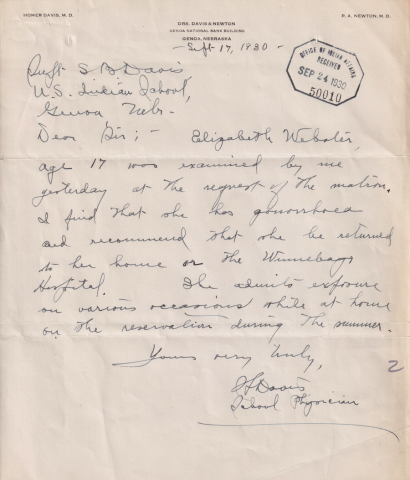 HOMER DAVIS, M. D.
DRS. DAVIS & NEWTON
GENOA NATIONAL BANK BUILDING
GENOA, NEBRASKA
R. A. NEWTON, M. D.
- Sept 17, 1930 -
OFFICE OF INDIAN AFFAIRS
RECEIVED
SEP 24 1930
50010
Supt S. B. Davis
U.S. Indian School,
Genoa Nebr-
Dear Sir; - Elizabeth Webster,
age 17 was examined by me
yesterday at the request of the matron.
I find that she has gonorrhoea
and recommend that she be returned
to her home or the Winnebago
Hospital. She admits exposure
on various occasions while at home
on the reservation during the summer.
Yours very truly,
Davis
School Physician
2